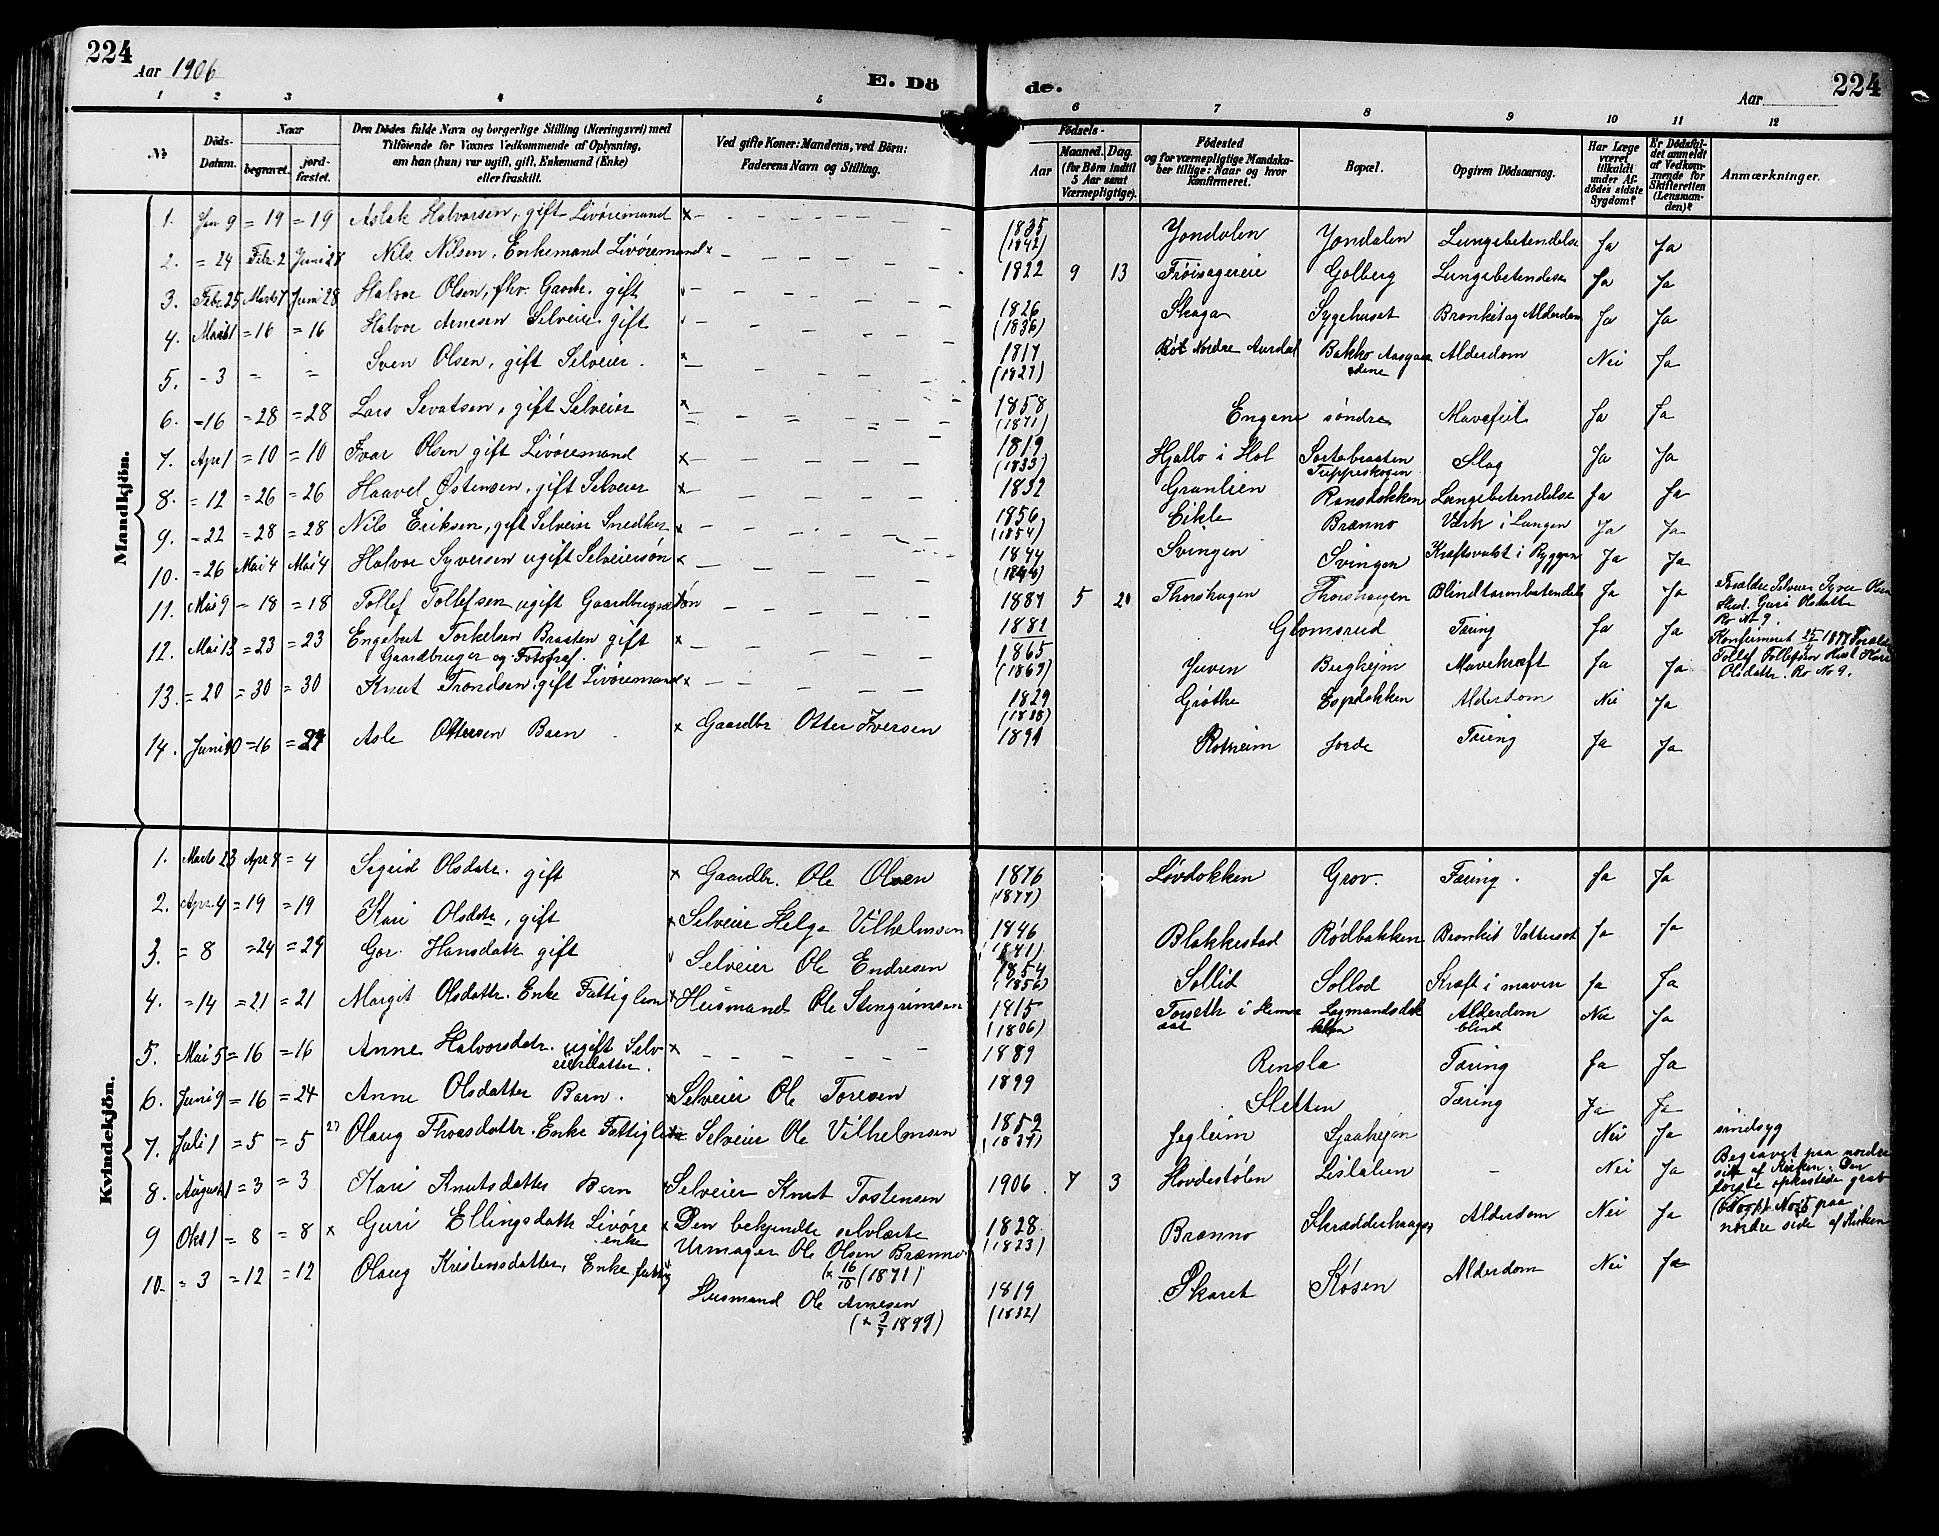 224
Aar 1906
E. Dö
de.
Aar
224
1 2 3 4 5 6 7 8 9 10 11 12
No.
Döds-Datum.
Naar
begravet.
jord-fæstet.
Den Dödes fulde Navn og borgerlige Stilling (Næringsvei) med
Tilföiende for Voxnes Vedkommende af Oplysning,
om han (hun) var ugift, gift, Enkemand (Enke)
eller fraskilt.
Ved gifte Koner: Mandens, ved Börn:
Faderens Navn og Stilling.
Födsels-
Aar
Maaned. Dag.
(for Börn indtil
5 Aar samt
Værnepligtige).
Födested
og for værnepligtige Mandska-
ber tillige: Naar og hvor
konfirmeret.
Bopæl.
Opgiven Dödsaarsag.
Har Læge
været
tilkaldt
under Af-
dödes sidste
Sygdom?
Er Dödsfal-
det anmeldt
af Vedkom-
mende for
Skifteretten
(Lensman-
den)?
Anmærkninger.
Mandkjön.
1. Jan 9 = 19 = 19 Aslak Halvorsen, gift Livöremand x 1835 (1842) Jondalen Jondalen Lungebetendelse Ja Ja
2. = 24 Febr. 2 Juni 28 Nils Nilsen, Enkemand Livöremand x 1822 9 13 Golberg Lungebetendelse Ja Ja
3. Febr 25 Marts 7 Juni 28 Halvor Olsen, fhv. Gaardbr. gift 1826 (1836) Skaga Sygehuset Bronkit og Alderdom Ja Ja
4. Marts 1 = 16 = 16 Halvor Arnesen Selveier gift 1817 (1827) Nordre Aurdal Bakko Alderdom Nei Ja
5. - 3 = = Sven Olsen, gift Selveier. x
6. = 16 = 28 = 28 Lars Sevatsen, gift Selveier x 1858 (1871) Engene söndre Mavefeil Ja Ja
7. Apr 1 = 10 = 10 Ivar Olsen gift Livöremand x 1819 (1833) Hjallo i Hol Sortebraaten Slag Ja Ja
8. = 12 = 26 = 26 Haavel Østensen, gift Selveier x 1832 Granlien Ransdokken Lungebetendelse Ja Ja
9. = 22 = 28 = 28 Nils Eriksen, gift Selveier Snedker x 1856 (1854) Eikle Brænno Værk i Lungen Ja Ja
10. = 26 Mai 4 Mai 4 Halvor Syversen ugift Selveiersøn x 1844 Svingen Svingen Kræftsvulst i Ryggen Ja Ja
11. Mai 9 = 18 = 18 Tollef Tollefsen ugift Gaardbrugersøn 1887 5 20 Thorshagen Thorshaugen Blindtarmbetendelse Ja Ja
12. Mai 13 = 23 = 23 Engebret Torkelsen Braaten gift x 1882 Glomsrud Tæring Ja Ja
Gaardbruger og Fotograf. 1865 (1869) Juven Berghejm Mavekræft Ja Ja
13. = 20 = 30 = 30 Knut Trondsen gift Livöremand x 1829 Grøthe Espedokken Alderdom Nei Ja
14. Juni 10 = 16 = 24 Asle Ottersen Barn x Gaardbr Otter Iversen 1891 Rotneim Jorde Tæring Ja Ja
Ro No 9.
Konfirmeret
Ro No 9.
Kvindekjön.
1. Marts 23 Apr 4 = 4 Sigrid Olsdatr. gift x Gaardbr. Ole Olsen 1876 (1877) Løvdokken Grov. Tæring. Ja Ja
2. Apr. 9 = 19 = 19 Kari Olsdtr, gift x Selveier Helge Vilhelmsen 1846 (1841) Blakkestad Rødbakken Bronkit Vattersot Ja Ja
3. = 8 = 24 = 29 Gor. Hansdatr gift Selveier Ole Endresen 1854 (1856) Sollid Sollid Kræft i maven Ja Ja
4. = 14 = 21 = 21 Margit Olsdattr. Enke Fattiglem x Husmand Ole Stengrimsen 1815 (1806) Torseth i Hemse Alderdom blind Nei Ja
5. Mai 5 = 16 = 16 Anne Halvorsdatr. ugift Selv-
eierdatter. x 1889 Rensla Tæring Ja Ja
6. Juni 9 = 16 = 24 Anne Olsdatter Barn. x Selveier Ole Toresen 1899 Sletten Tæring Ja Ja
7. Juli 1 = 5 = 5 Olaug Thorsdattr. Enke Fattiglem Selveier Ole Vilhelmsen 1852 (1837) Jegleim Sjaahejm Nei Ja sindsyg
8. August 1 = 3 = 3 Kari Knutsdatter Barn Selveier Knut Tostensen 1906 7 3 Hovdestølen Lislelien - Nei Ja Begravet paa nordre
side af Kirken. Den
første opkastede grav
9 Okt 1 = 8 = 8 x Guri Ellingsdattr Livöre
enke x Den bekjendte selvlærte
Urmager Ole Olsen Brænno
(x 16/10 1871) 1828 (1823) Brænno Skrædderhaugen Alderdom Nei Ja paa
nordre side af Kirken
10 = 3 = 12 = 12 Olaug Kristensdatter, Enke fattig Husmand Ole Arnesen
1899) 1819 (1832) Skaret Køsen Alderdom Nei Ja